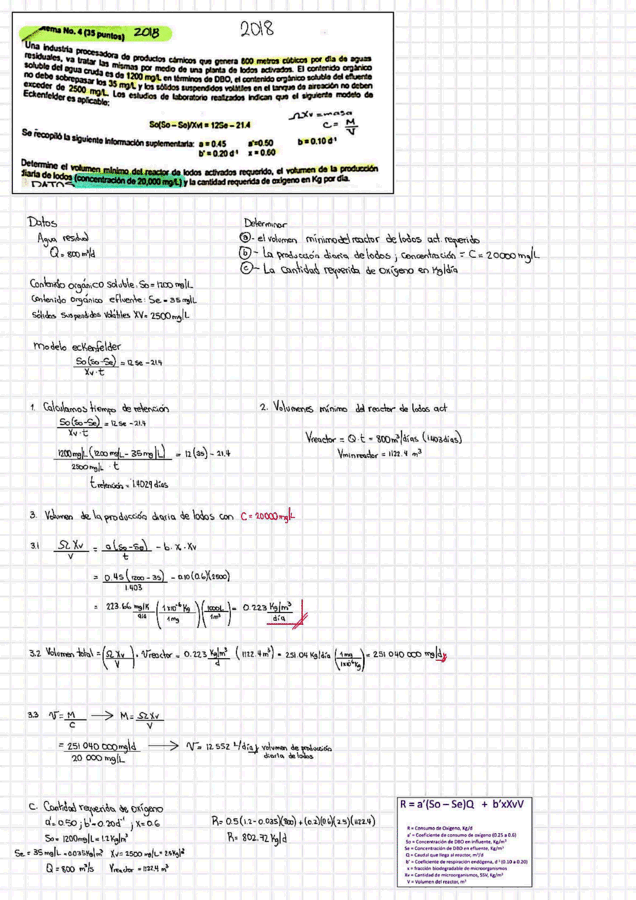 ema No. 4 (35 puntos) 2018
2018
Una industria procesadora de productos cárnicos que genera 800 metros cúbicos por día de aguas
residuales, va tratar las mismas por medio de una planta de lodos activados. El contenido orgánico
soluble del agua cruda es de 1200 mg/L en términos de DBO, el contenido orgánico soluble del efluente
no debe sobrepasar los 35 mg/L y los sólidos suspendidos volátiles en el tanque de aireación no deben
exceder de 2500 mg/L. Los estudios de laboratorio realizados indican que el siguiente modelo de
Eckenfelder es aplicable:
ΩXv = masa
C = M/V
So(So – Se)/Xvt = 12Se – 21.4
Se recopiló la siguiente información suplementaria: a = 0.45 a'=0.50 b = 0.10 d⁻¹
b' = 0.20 d⁻¹ x = 0.60
Determine el volumen mínimo del reactor de lodos activados requerido, el volumen de la producción
diaria de lodos (concentración de 20,000 mg/L) y la cantidad requerida de oxígeno en Kg por día.
DATOS
Datos
Agua residual
Q = 800 m³/d
Determinar
a - el volumen mínimo del reactor de lodos act. requerido
b - La producción diaria de lodos ; concentración = C = 20000 mg/L
c - La cantidad requerida de oxígeno en Kg/día
Contenido orgánico soluble: So = 1200 mg/L
Contenido orgánico efluente: Se = 35 mg/L
sólidos suspendidos volátiles XV = 2500 mg/L
modelo eckenfelder
So(So-Se)/Xv·t = 12Se - 21.4
1. Calculamos tiempo de retención
So(So-Se)/Xv·t = 12Se - 21.4
1200mg/L (1200mg/L - 35mg/L)/2500mg/L · t = 12(35) - 21.4
t retención = 1.4029 días
2. Volumenes mínimo del reactor de lodos act
Vreactor = Q·t = 800m³/días (1.403días)
Vminreactor = 1122.4 m³
3. Volumen de la producción diaria de lodos con C = 20000 mg/L
3.1 ΩXv/V = a(So-Se)/t - b·x·Xv
= 0.45(1200-35)/1.403 - 0.10(0.6)(2500)
= 223.66 mg/L/día (1x10⁻⁶Kg/1mg)(1000L/1m³) = 0.223 Kg/m³/día
3.2 Volumen total = (ΩXv/V)·Vreactor = 0.223 Kg/m³/d (1122.4m³) = 251.04 Kg/día (1mg/1x10⁻⁶Kg) = 251 040 000 mg/d
3.3 V = M/C → M = ΩXv/V
= 251 040 000mg/d/20 000 mg/L → V = 12 552 L/día volumen de producción
diaria de lodos
C. Cantidad requerida de oxígeno
a' = 0.50 ; b' = 0.20d⁻¹ ; x = 0.6
So = 1200mg/L = 1.2Kg/m³
Se = 35mg/L = 0.035Kg/m³ Xv = 2500 mg/L = 2.5Kg/m³
Q = 800 m³/s Vreactor = 1122.4 m³
R = 0.5(1.2-0.035)(800) + (0.2)(0.6)(2.5)(1122.4)
R = 802.72 Kg/d
R = a'(So – Se)Q + b'xXvV
R = Consumo de Oxígeno, Kg/d
a' = Coeficiente de consumo de oxígeno (0.25 a 0.6)
So = Concentración de DBO en influente, Kg/m³
Se = Concentración de DBO en efluente, Kg/m³
Q = Caudal que llega al reactor, m³/d
b' = Coeficiente de respiración endógena, d⁻¹ (0.10 a 0.20)
x = fracción biodegradable de microorganismos
Xv = Cantidad de microorganismos, SSV, Kg/m³
V = Volumen del reactor, m³